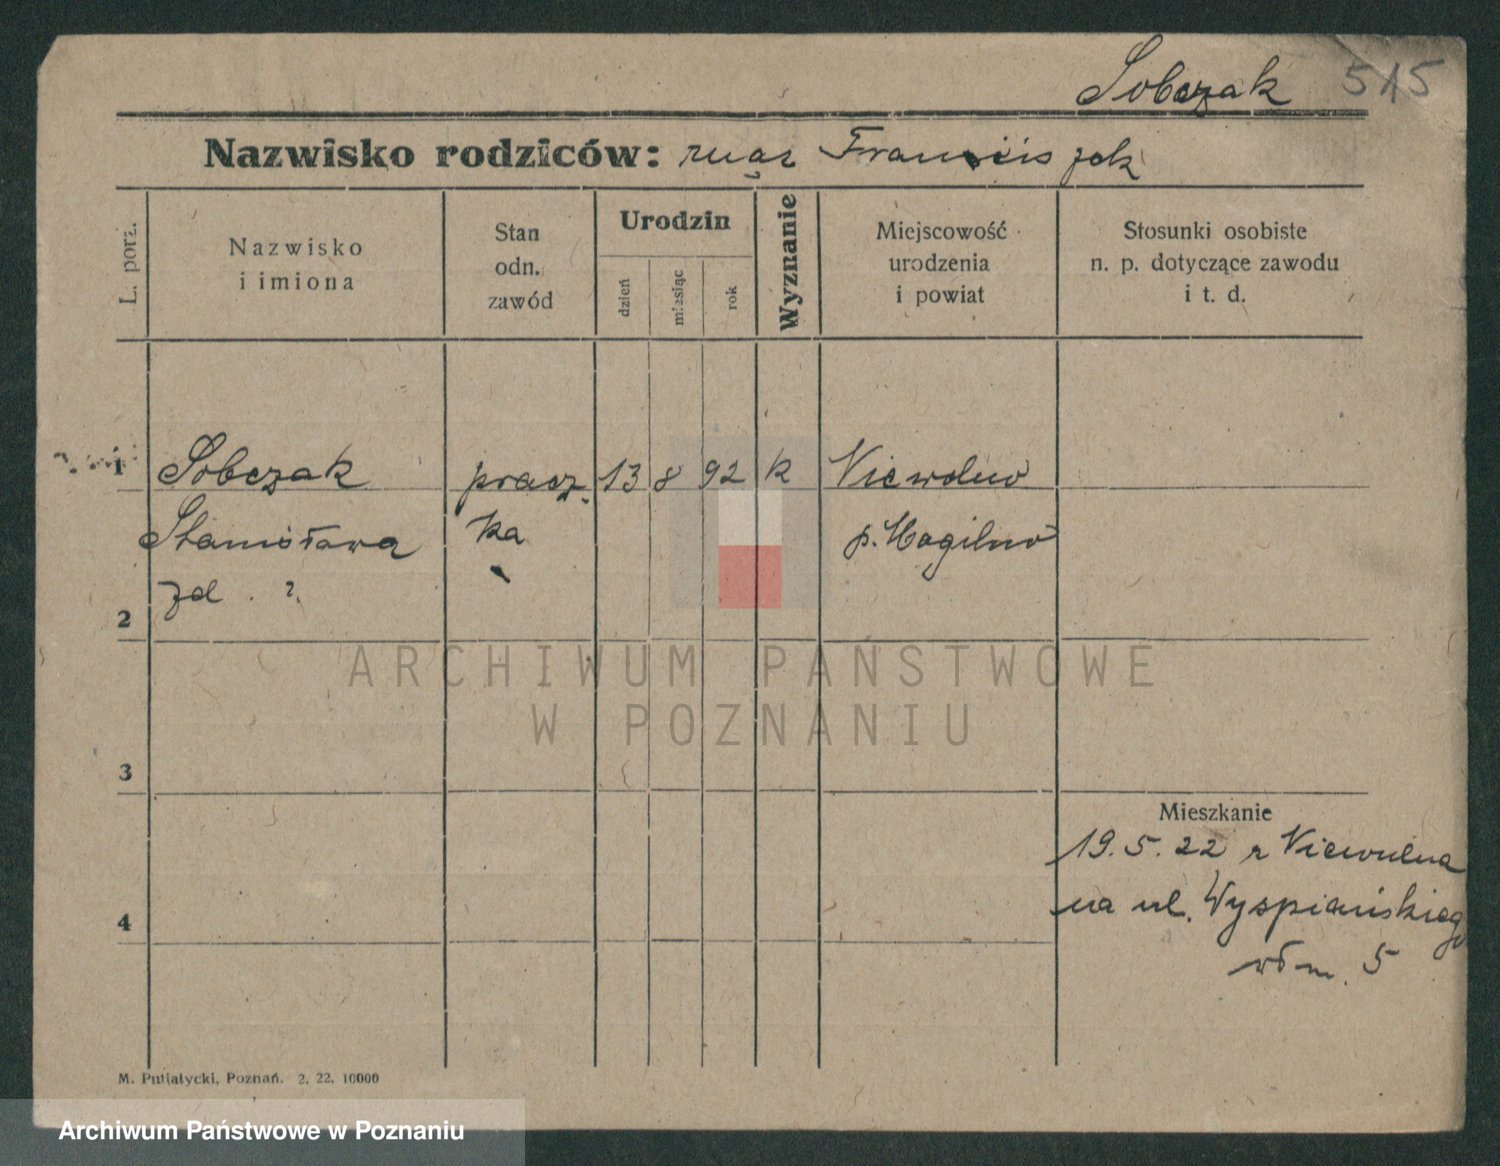 Sobczak 515
Nazwisko rodziców: mąż Franciszek
L. porz.
Nazwisko
i imiona
Stan
odn.
zawód
Urodzin
dzień
miesiąc
rok
Wyznanie
Miejscowość
urodzenia
i powiat
Stosunki osobiste
n. p. dotyczące zawodu
i t. d.
1 Sobczak pracz. 13 8 92 k Niewolno
Stanisława ka p. Mogilno
zd . ?.
2
ARCHIWUM PAŃSTWOWE
W POZNANIU
3
Mieszkanie
19.5.22 z Niewolna
na ul. Wyspiańskiego
4
5
M. Putiatycki, Poznań. 2. 22. 10000
Archiwum Państwowe w Poznaniu